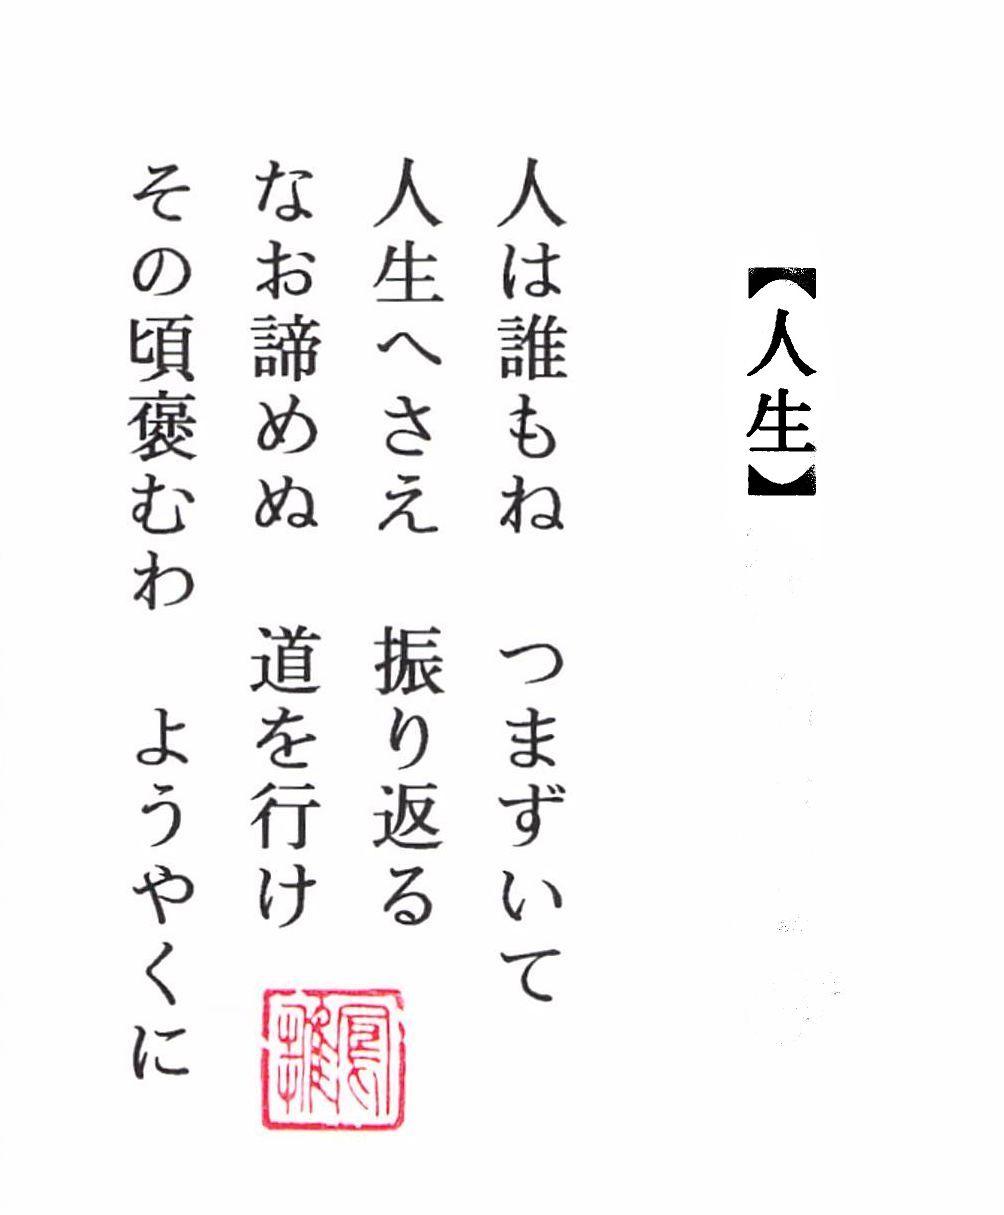 【人生】
人は誰もね　つまずいて
人生へさえ　振り返る
なお諦めぬ　道を行け
その頃褒むわ　ようやくに